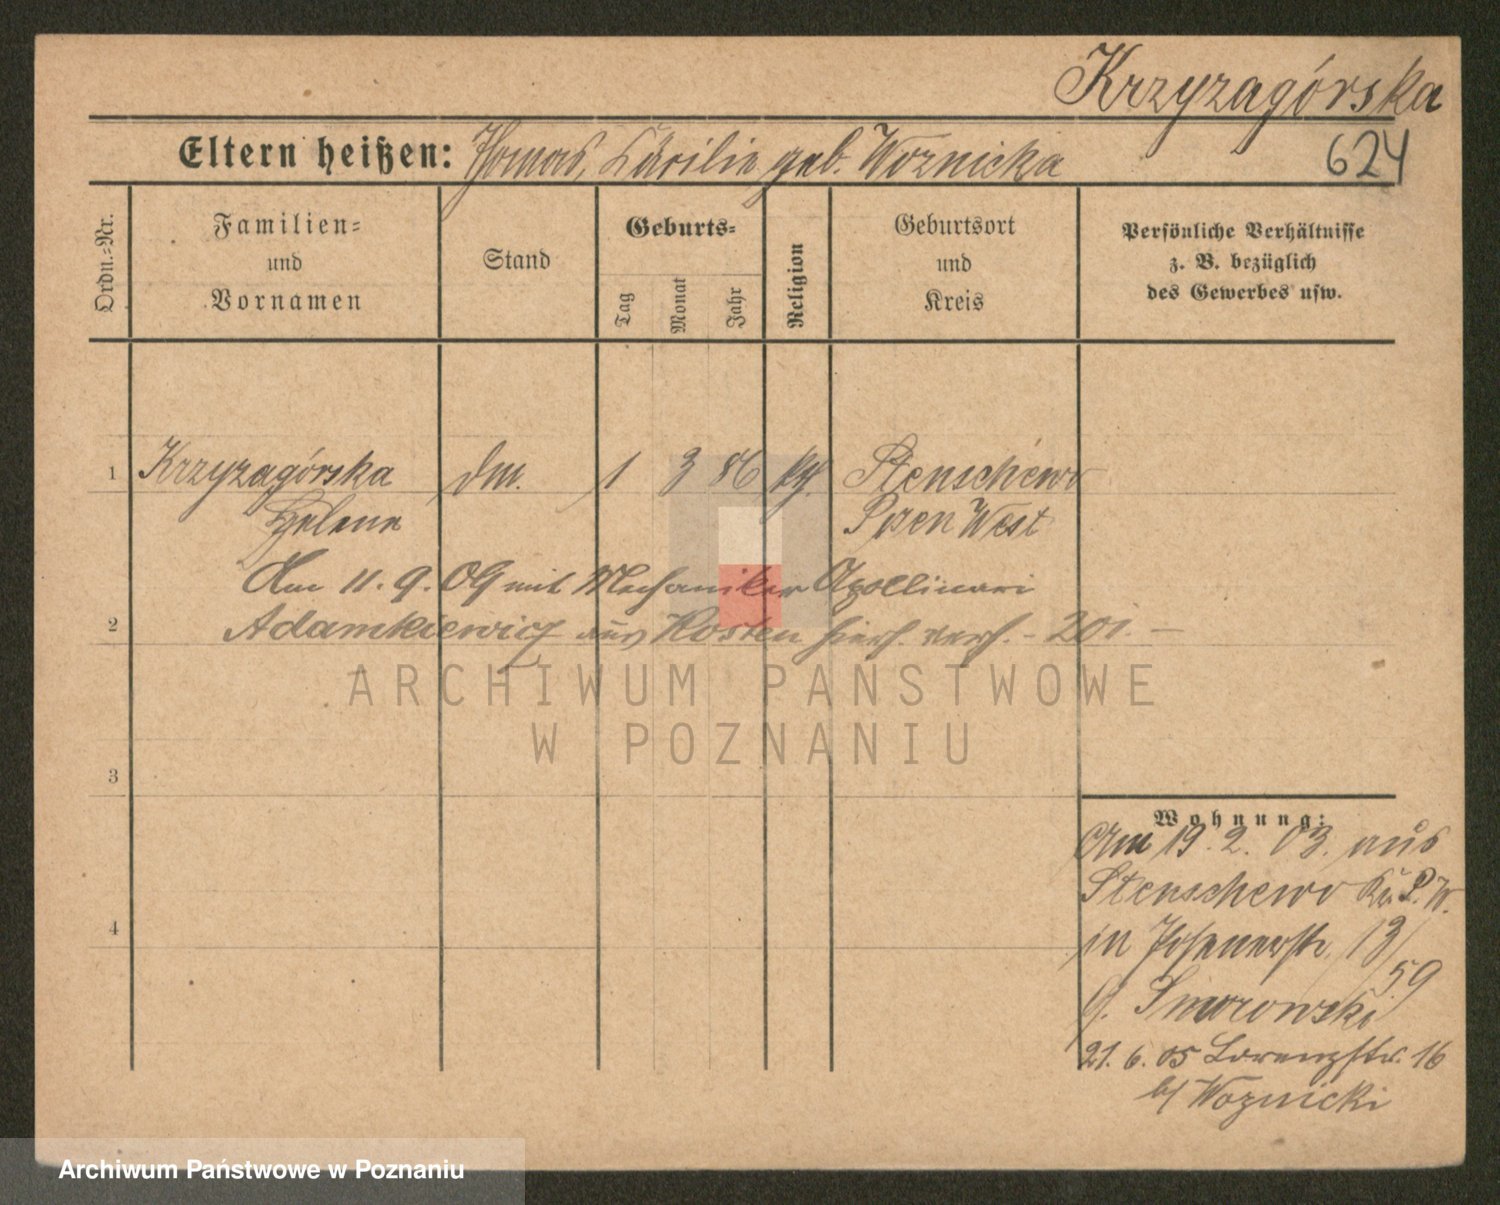 Krzyzagórska
624
Eltern heißen: Thomas, Cäcilie geb. Woznicka
Ordn.=Nr.
Familien=
und
Vornamen
Stand
Geburts=
Tag
Monat
Jahr
Religion
Geburtsort
und
Kreis
Persönliche Verhältnisse
z. B. bezüglich
des Gewerbes usw.
1 Krzyzagórska dm. 1 3 86 kth. Stenschewo
Helene Posen West
Am 11.9.09 mit Mechaniker Apollinari
2 Adamkiewicz aus Kosten hies. verh. - 201. -
ARCHIWUM PAŃSTWOWE
W POZNANIU
3
4
Wohnung:
Am 19.2.03. aus
Stenschewo Kr. P. W.
in Posenerstr. 13/
59
Smorowski
21.6.05 Lorenzstr. 16
b/ Woznicki
Archiwum Państwowe w Poznaniu